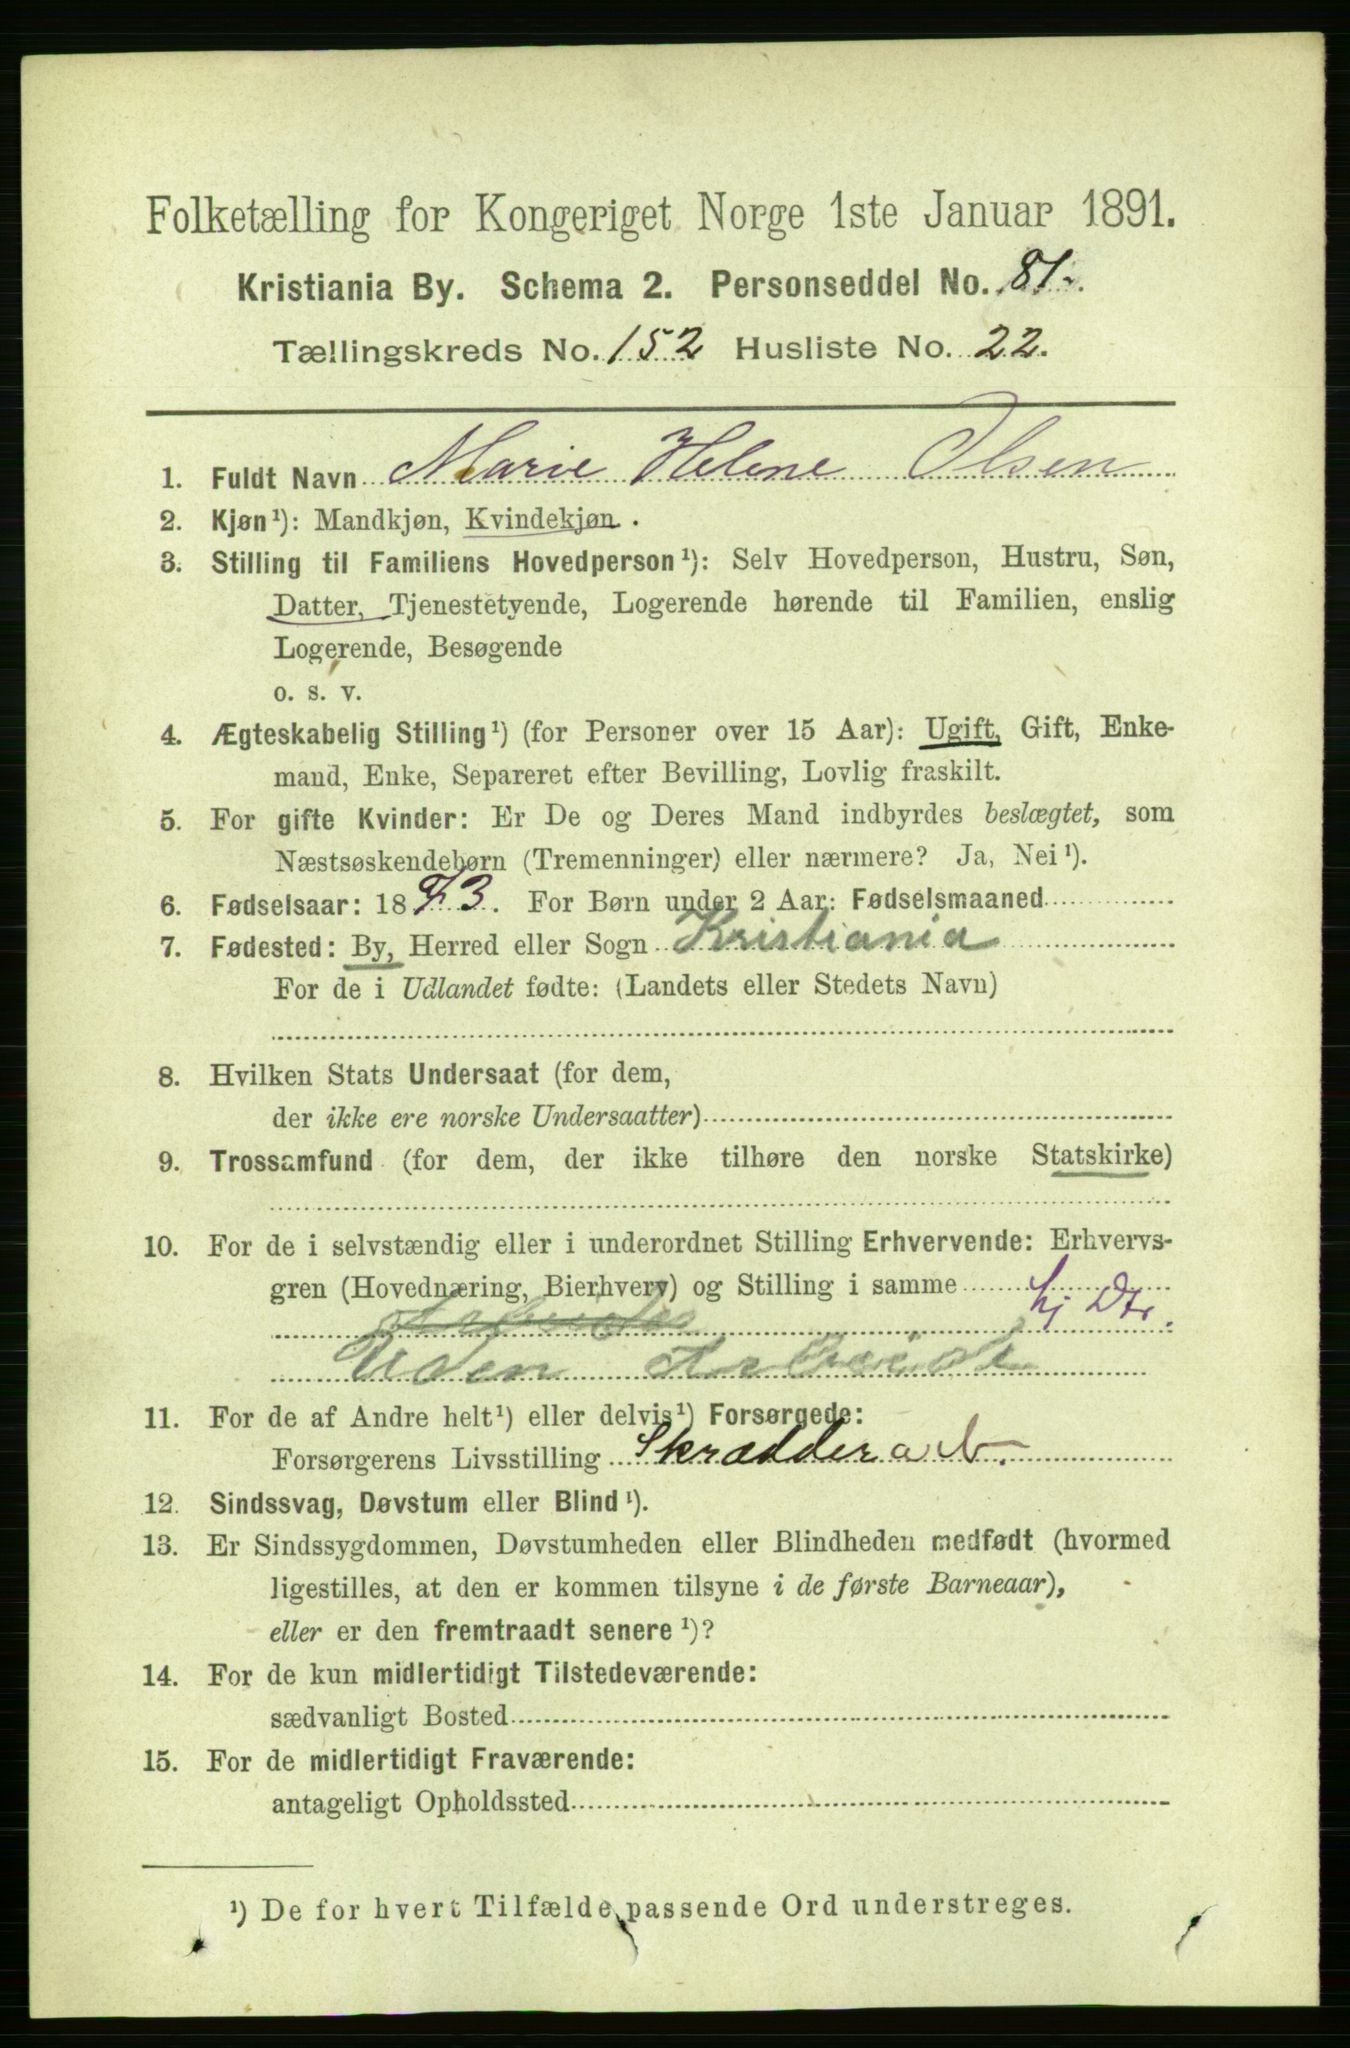 Folketælling for Kongeriget Norge 1ste Januar 1891.
Kristiania By. Schema 2. Personseddel No. 81.
Tællingskreds No. 152 Husliste No. 22.
1. Fuldt Navn Marie Helene Olsen
2. Kjøn¹): Mandkjøn, Kvindekjøn.
3. Stilling til Familiens Hovedperson¹): Selv Hovedperson, Hustru, Søn,
Datter, Tjenestetyende, Logerende hørende til Familien, enslig
Logerende, Besøgende
o. s. v.
4. Ægteskabelig Stilling¹) (for Personer over 15 Aar): Ugift, Gift, Enke-
mand, Enke, Separeret efter Bevilling, Lovlig fraskilt.
5. For gifte Kvinder: Er De og Deres Mand indbyrdes beslægtet, som
Næstsøskendebørn (Tremenninger) eller nærmere? Ja, Nei¹).
6. Fødselsaar: 1873. For Børn under 2 Aar: Fødselsmaaned
7. Fødested: By, Herred eller Sogn Kristiania
For de i Udlandet fødte: (Landets eller Stedets Navn)
8. Hvilken Stats Undersaat (for dem,
der ikke ere norske Undersaatter)
9. Trossamfund (for dem, der ikke tilhøre den norske Statskirke)
10. For de i selvstændig eller i underordnet Stilling Erhvervende: Erhvervs-
gren (Hovednæring, Bierhverv) og Stilling i samme hj Dtr.
Arbeider
Uden Arbeide
11. For de af Andre helt¹) eller delvis¹) Forsørgede:
Forsørgerens Livsstilling Skrædderarb.
12. Sindssvag, Døvstum eller Blind¹).
13. Er Sindssygdommen, Døvstumheden eller Blindheden medfødt (hvormed
ligestilles, at den er kommen tilsyne i de første Barneaar),
eller er den fremtraadt senere¹)?
14. For de kun midlertidigt Tilstedeværende:
sædvanligt Bosted
15. For de midlertidigt Fraværende:
antageligt Opholdssted
¹) De for hvert Tilfælde passende Ord understreges.